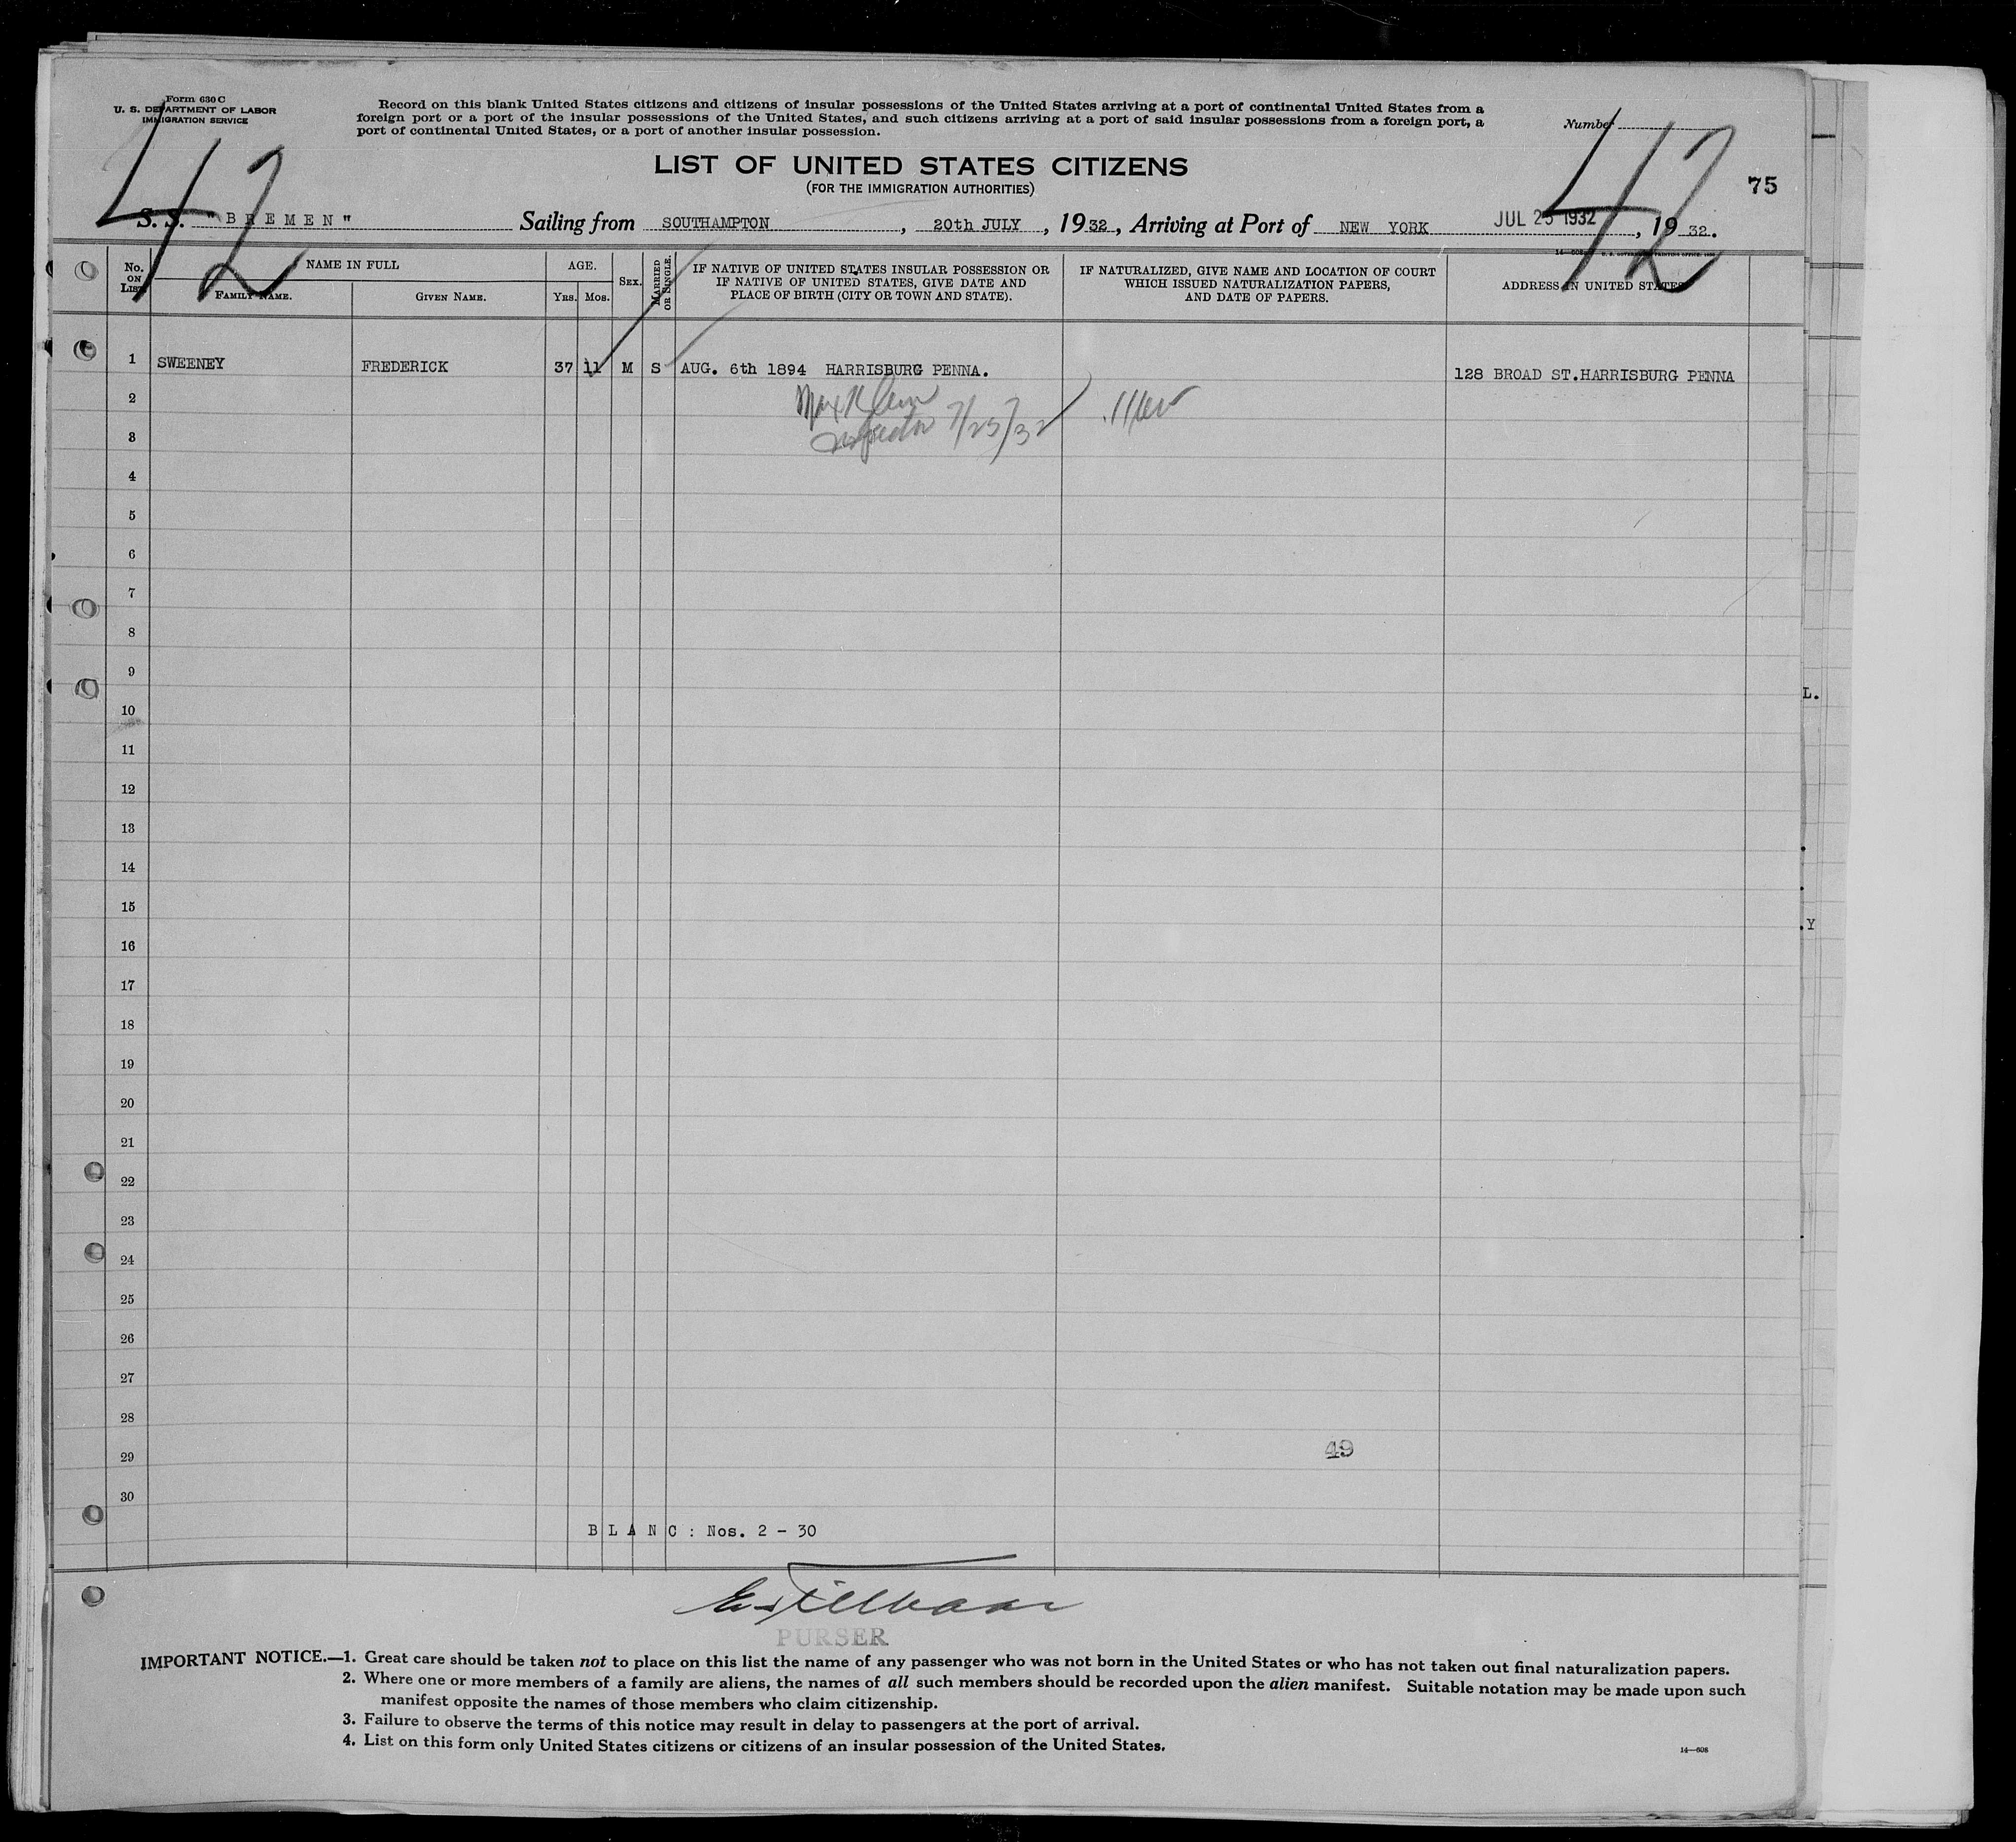 Form 630 C
U. S. DEPARTMENT OF LABOR
IMMIGRATION SERVICE
Record on this blank United States citizens and citizens of insular possessions of the United States arriving at a port of continental United States from a
foreign port or a port of the insular possessions of the United States, and such citizens arriving at a port of said insular possessions from a foreign port, a
port of continental United States, or a port of another insular possession.
Number
42
42
LIST OF UNITED STATES CITIZENS
(FOR THE IMMIGRATION AUTHORITIES)
75
S. S. "BREMEN" Sailing from SOUTHAMPTON, 20th JULY, 1932, Arriving at Port of NEW YORK JUL 25 1932, 1932.
No. ON LIST
NAME IN FULL
FAMILY NAME.
GIVEN NAME.
AGE.
YRS. MOS.
SEX.
MARRIED OR SINGLE.
IF NATIVE OF UNITED STATES INSULAR POSSESSION OR
IF NATIVE OF UNITED STATES, GIVE DATE AND
PLACE OF BIRTH (CITY OR TOWN AND STATE).
IF NATURALIZED, GIVE NAME AND LOCATION OF COURT
WHICH ISSUED NATURALIZATION PAPERS,
AND DATE OF PAPERS.
ADDRESS IN UNITED STATES
1 SWEENEY FREDERICK 37 11 M S AUG. 6th 1894 HARRISBURG PENNA. 128 BROAD ST.HARRISBURG PENNA
2
Inspector 7/25/32
3
4
5
6
7
8
9
10
11
12
13
14
15
16
17
18
19
20
21
22
23
24
25
26
27
28
29
49
30
BLANC: Nos. 2 - 30
PURSER
IMPORTANT NOTICE.—1. Great care should be taken not to place on this list the name of any passenger who was not born in the United States or who has not taken out final naturalization papers.
2. Where one or more members of a family are aliens, the names of all such members should be recorded upon the alien manifest. Suitable notation may be made upon such
manifest opposite the names of those members who claim citizenship.
3. Failure to observe the terms of this notice may result in delay to passengers at the port of arrival.
4. List on this form only United States citizens or citizens of an insular possession of the United States.
14—608
L.
.Y